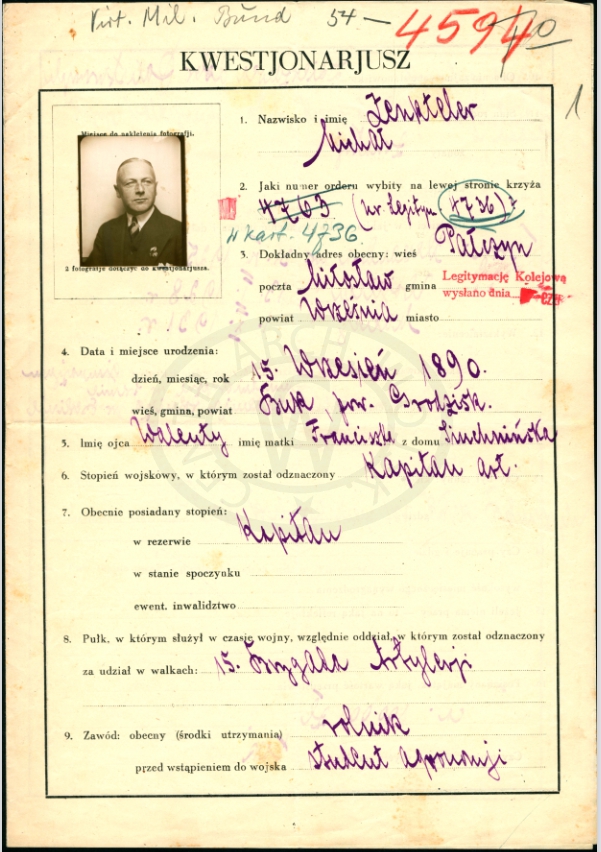 Virt. Mil. Bund 54 — 4594
KWESTJONARJUSZ
1
Miejsce do naklejenia fotografji.
2 fotografje dołączyć do kwestjonarjusza.
1. Nazwisko i imię Zenkteler
Michał
2. Jaki numer orderu wybity na lewej stronie krzyża
4763 (nr legitym 4736)
w kart. 4736.
3. Dokładny adres obecny: wieś Pałczyn
poczta Miłosław gmina
powiat Września miasto
Legitymację Kolejową
wysłano dnia
4. Data i miejsce urodzenia:
dzień, miesiąc, rok 15. Wrzesień 1890.
wieś, gmina, powiat Buk, pow. Grodzisk.
5. Imię ojca Walenty imię matki Franciszka z domu Siuchnińska
6. Stopień wojskowy, w którym został odznaczony Kapitan art.
7. Obecnie posiadany stopień:
w rezerwie Kapitan
w stanie spoczynku
ewent. inwalidztwo
8. Pułk, w którym służył w czasie wojny, względnie oddział, w którym został odznaczony
za udział w walkach: 15. Brygada Artylerji
9. Zawód: obecny (środki utrzymania) rolnik
przed wstąpieniem do wojska student agronomji